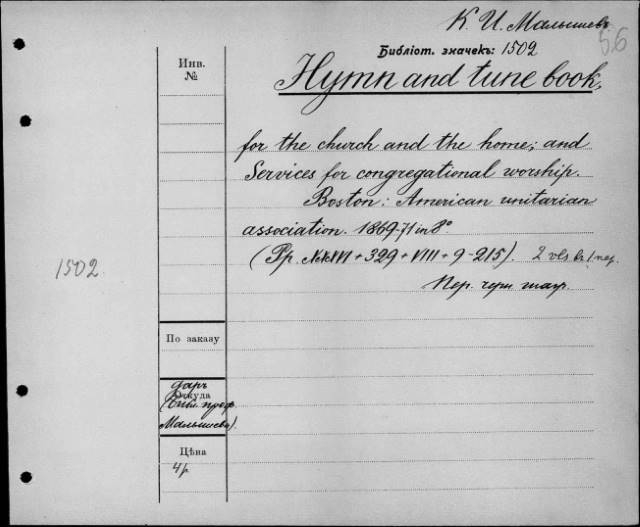 К. И. Малышевъ
56
Библіот. значекъ: 1502
Hymn and tune book,
Инв.
№
for the church and the home; and
Services for congregational worship.
Boston: American unitarian
association. 1869-71 in 8°
(Pp. + 329 + VIII + 9-215). 2 vls въ 1 пер.
1502.
Пер. черн. шагр.
По заказу
даръ
Откуда
(Библ. проф.
Малышева).
Цѣна
4 р